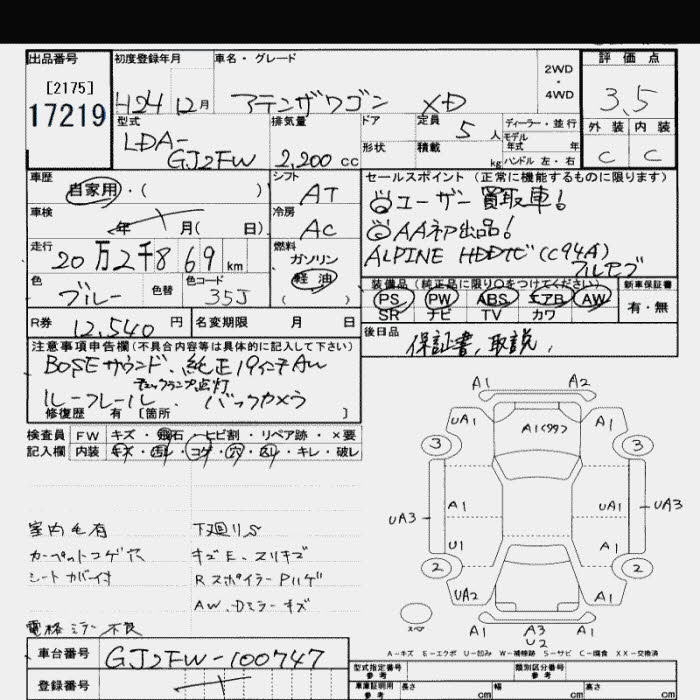 出品番号 初度登録年月 車名・グレード 2WD・4WD 評価点
[2175]
17219
H24 12月 アテンザワゴン XD 3.5
型式 排気量 ドア 定員 5人 ディーラー・並行 外装 内装
モデル年式 年
LDA-GJ2FW 2,200cc 形状 積載 kg ハンドル 左・右 C C
車歴 シフト セールスポイント(正常に機能するものに限ります)
自家用・( ) AT ユーザー買取車!
車検 冷房 AA初出品!
年 月( 日) AC ALPINE HDDナビ(C94A)
走行 燃料 フルセグ
20万2千869km ガソリン 装備品(純正品に限り○をつけてください) 新車保証書
色 色替 色コード 軽油 PS PW ABS エアB AW 有・無
ブルー 35J ( ) SR ナビ TV カワ
R券 12,540円 名変期限 月 日 後日品
保証書、取説、
注意事項申告欄(不具合内容等は具体的に記入して下さい)
BOSEサウンド、純正19インチAW
チェックランプ点灯
ルーフレール、バックカメラ
修復歴 有 [箇所 ]
検査員 FW キズ・飛石・ヒビ割・リペア跡・×要
記入欄 内装 キズ・汚レ・コゲ・穴・スレ・キレ・破レ
室内毛有 下廻りS
カーペットコゲ穴 キズE、スリキズ
シートカバー付 RスポイラーPハゲ
AW、Dミラーキズ
電格ミラー不良
A1 A2
UA1 A1(99) A1
3 3
UA3 A1 UA1 UA3
U1 A1
2 2
UA2 A1
スペア A1 A3 A1
U2
A-キズ E-エクボ U-凹み W-補修跡 S-サビ C-腐食 XX-交換済
車台番号 GJ2FW-100747
登録番号
型式指定番号 参考 類別区分番号 参考
車庫証明用 参考 長さ cm 幅 cm 高さ cm